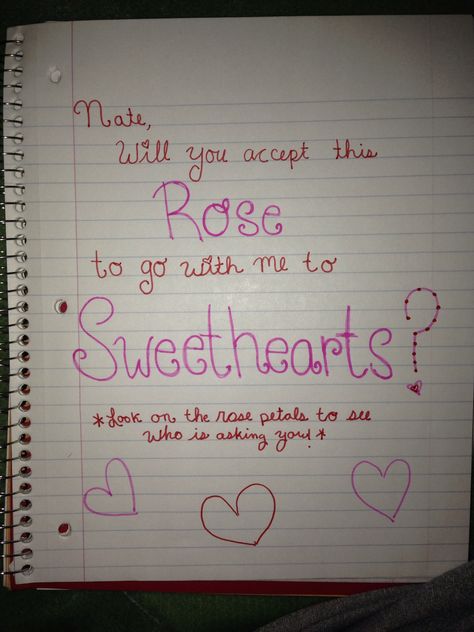 Nate,
Will you accept this
Rose
to go with me to
Sweethearts?
*Look on the rose petals to see
who is asking you!*